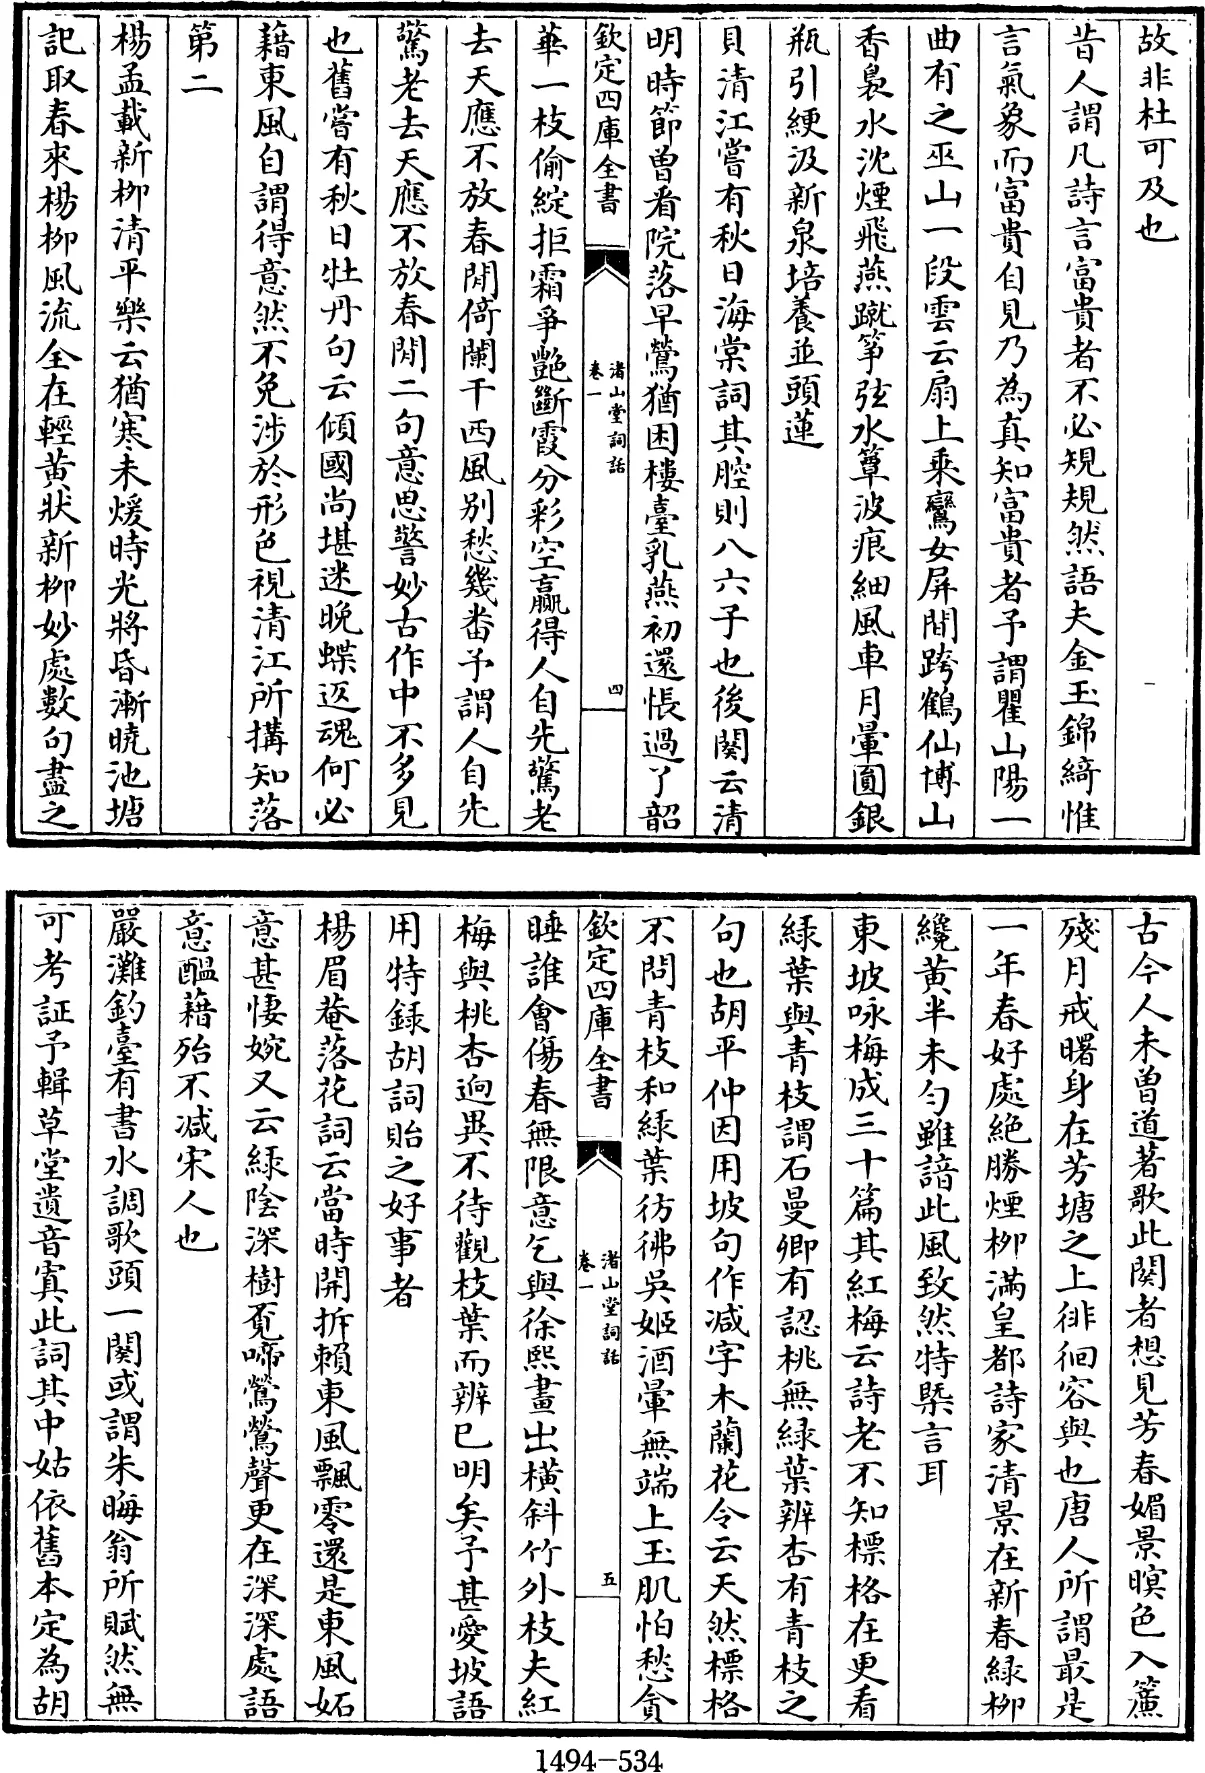 故非杜可及也
昔人謂凡詩言富貴者不必規規然語夫金玉錦綺惟
言氣象而富貴自見乃為真知富貴者予謂瞿山陽一
曲有之巫山一段雲云扇上乘鸞女屏間跨鶴仙博山
香裊水沈煙飛燕蹴箏弦水簟波痕細風車月暈圓銀
瓶引綆汲新泉培養並頭蓮
貝清江嘗有秋日海棠詞其腔則八六子也後闋云清
明時節曽看院落早鶯猶困樓臺乳燕初還悵過了韶
欽定四庫全書
渚山堂詞話
卷一
四
華一枝偷綻拒霜爭艷斷霞分彩空贏得人自先驚老
去天應不放春閒倚闌干西風别愁幾畨予謂人自先
驚老去天應不放春閒二句意思警妙古作中不多見
也舊嘗有秋日牡丹句云傾國尚堪迷晩蝶返魂何必
藉東風自謂得意然不免涉於形色視清江所搆知落
第二
楊孟載新栁清平樂云猶寒未煖時光將昏漸曉池塘
記取春來楊栁風流全在輕黄狀新栁妙處數句盡之
古今人未曽道著歌此闋者想見芳春媚景暝色入簾
殘月戒曙身在芳塘之上徘徊容與也唐人所謂最是
一年春好處絶勝煙栁滿皇都詩家清景在新春緑栁
纔黄半未勻雖諳此風致然特槩言耳
東坡咏梅成三十篇其紅梅云詩老不知標格在更看
緑葉與青枝謂石曼卿有認桃無緑葉辨杏有青枝之
句也胡平仲因用坡句作减字木蘭花令云天然標格
不問青枝和緑葉彷彿吳姬酒暈無端上玉肌怕愁貪
欽定四庫全書
渚山堂詞話
卷一
五
睡誰會傷春無限意乞與徐熙畫出橫斜竹外枝夫紅
梅與桃杏迥異不待觀枝葉而辨已明矣予甚愛坡語
用特録胡詞貽之好事者
楊眉菴落花詞云當時開拆賴東風飄零還是東風妬
意甚悽婉又云緑陰深樹覔啼鶯鶯聲更在深深處語
意醖藉殆不减宋人也
嚴灘釣臺有書水調歌頭一闋或謂朱晦翁所賦然無
可考証予輯草堂遺音寘此詞其中姑依舊本定為胡
1494-534